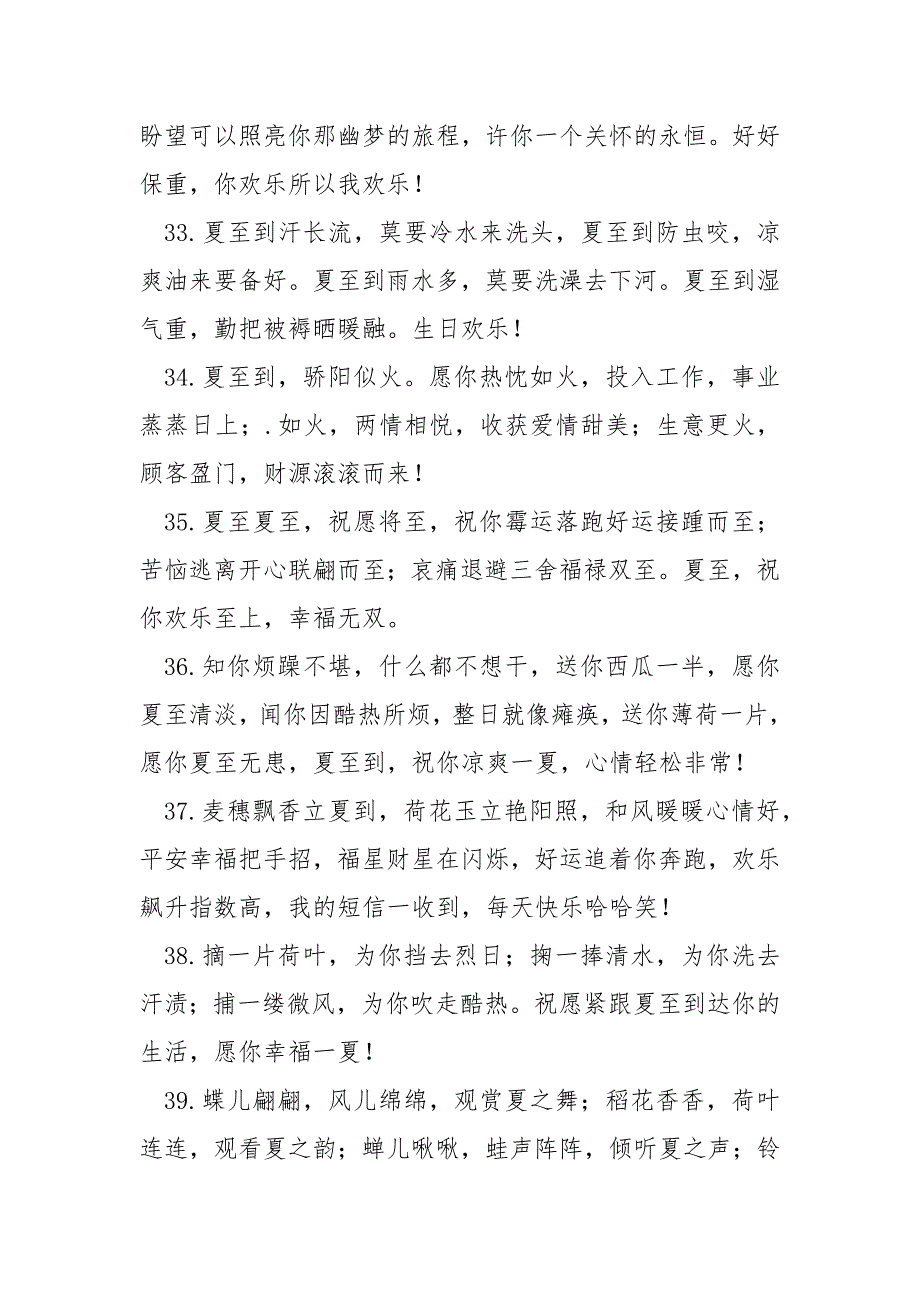 盼望可以照亮你那幽梦的旅程，许你一个关怀的永恒。好好
保重，你欢乐所以我欢乐！
33.夏至到汗长流，莫要冷水来洗头，夏至到防虫咬，凉
爽油来要备好。夏至到雨水多，莫要洗澡去下河。夏至到湿
气重，勤把被褥晒暖融。生日欢乐！
34.夏至到，骄阳似火。愿你热忱如火，投入工作，事业
蒸蒸日上；.如火，两情相悦，收获爱情甜美；生意更火，
顾客盈门，财源滚滚而来！
35.夏至夏至，祝愿将至，祝你霉运落跑好运接踵而至；
苦恼逃离开心联翩而至；哀痛退避三舍福禄双至。夏至，祝
你欢乐至上，幸福无双。
36.知你烦躁不堪，什么都不想干，送你西瓜一半，愿你
夏至清淡，闻你因酷热所烦，整日就像瘫痪，送你薄荷一片，
愿你夏至无患，夏至到，祝你凉爽一夏，心情轻松非常！
37.麦穗飘香立夏到，荷花玉立艳阳照，和风暖暖心情好，
平安幸福把手招，福星财星在闪烁，好运追着你奔跑，欢乐
飙升指数高，我的短信一收到，每天快乐哈哈笑！
38.摘一片荷叶，为你挡去烈日；掬一捧清水，为你洗去
汗渍；捕一缕微风，为你吹走酷热。祝愿紧跟夏至到达你的
生活，愿你幸福一夏！
39.蝶儿翩翩，风儿绵绵，观赏夏之舞；稻花香香，荷叶
连连，观看夏之韵；蝉儿啾啾，蛙声阵阵，倾听夏之声；铃